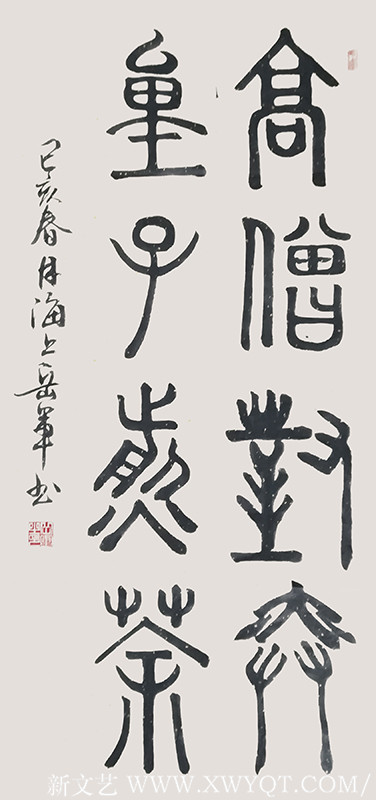 高僧對弈
童子煎茶
己亥春月海上岳軍书
新文艺 WWW.XWYQT.COM/